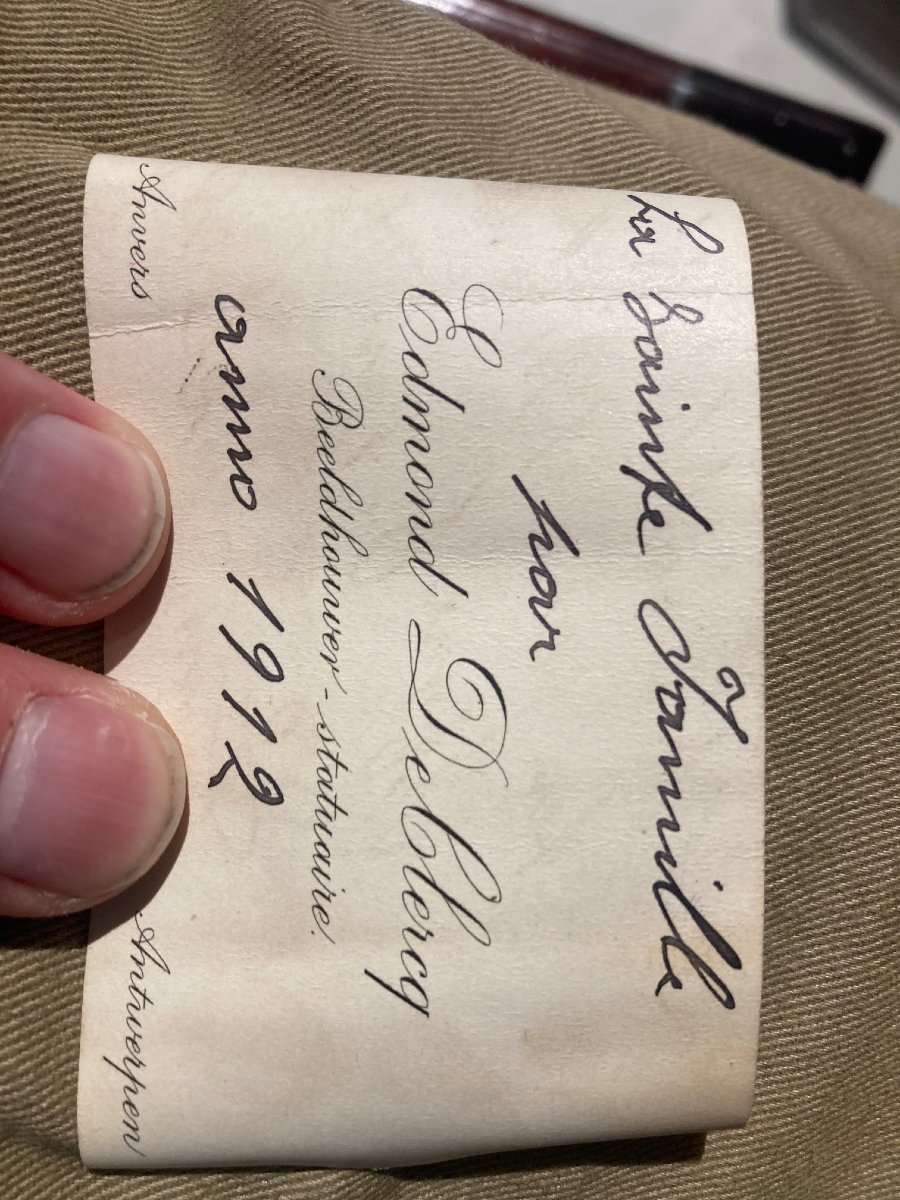 La Sainte Famille
par
Edmond DeClercq
Beeldhouwer-statuaire.
anno 1912
Anvers Antwerpen